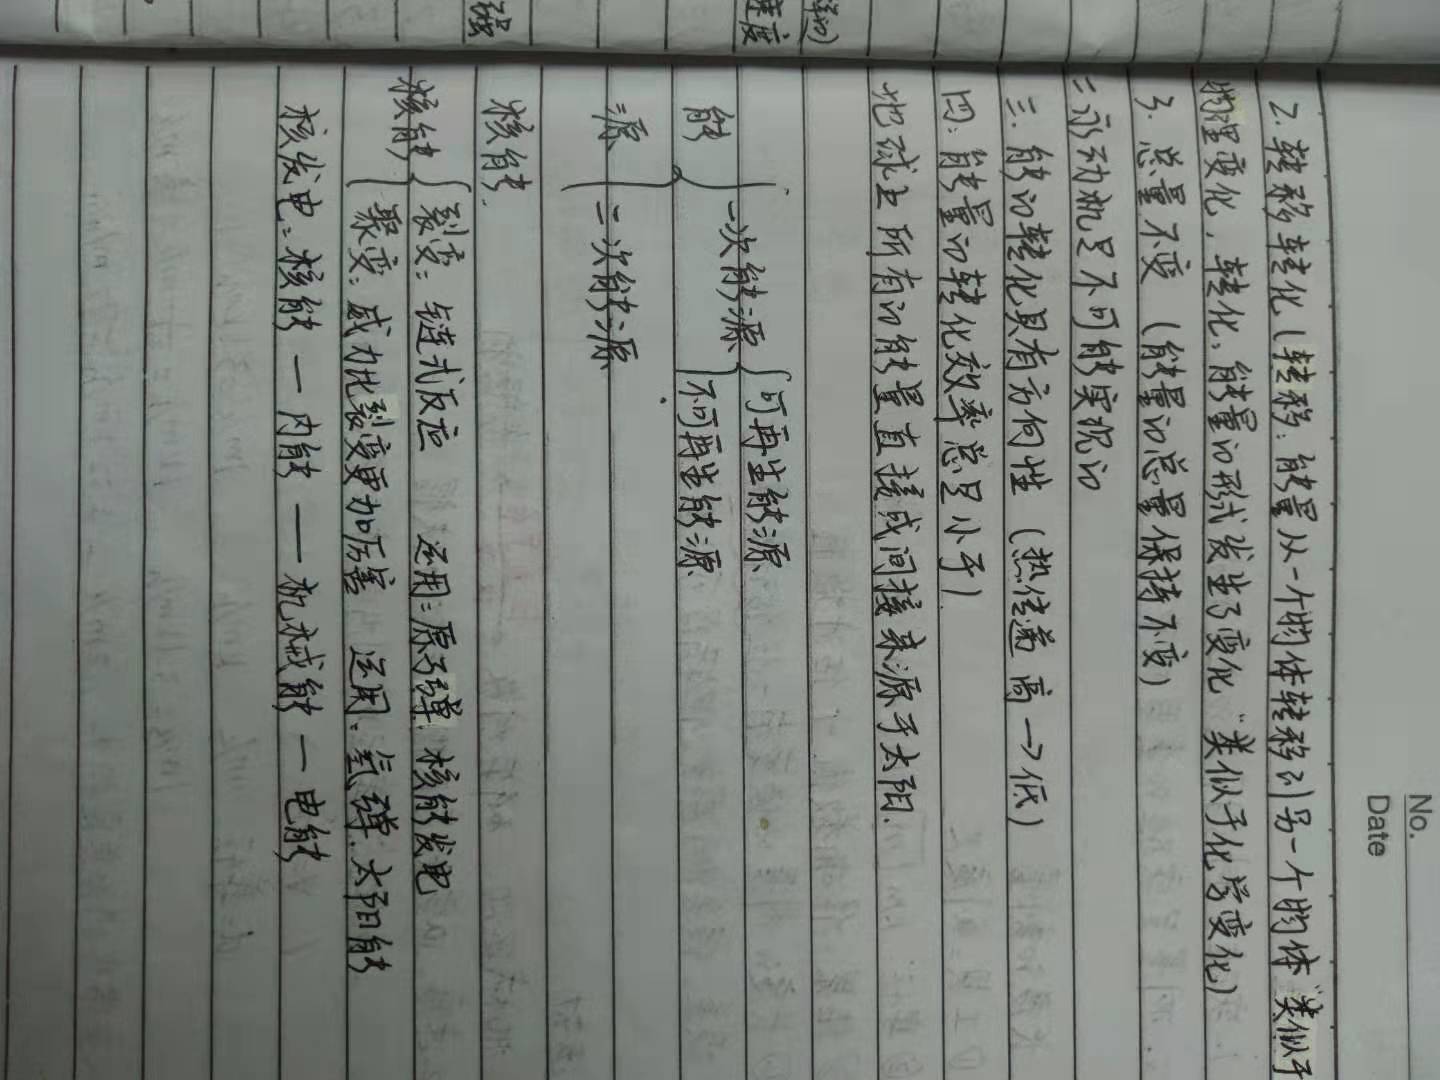 No.
Date
2. 转移转化(转移:能量从一个物体转移到另一个物体"类似于
物理变化,转化:能量的形式发生了变化"类似于化学变化)
3. 总量不变(能量的总量保持不变)
二 永动机是不可能实现的
三. 能的转化具有方向性(热传递 高→低)
四:能量的转化效率总是小于1.
地球上所有的能量直接或间接来源于太阳.
能源
一次能源
可再生能源
不可再生能源
二次能源
核能.
核能
裂变:链式反应 运用:原子弹.核能发电
聚变:威力比裂变更加厉害 运用:氢弹.太阳能
核发电:核能 — 内能 — 机械能 — 电能
强
速度